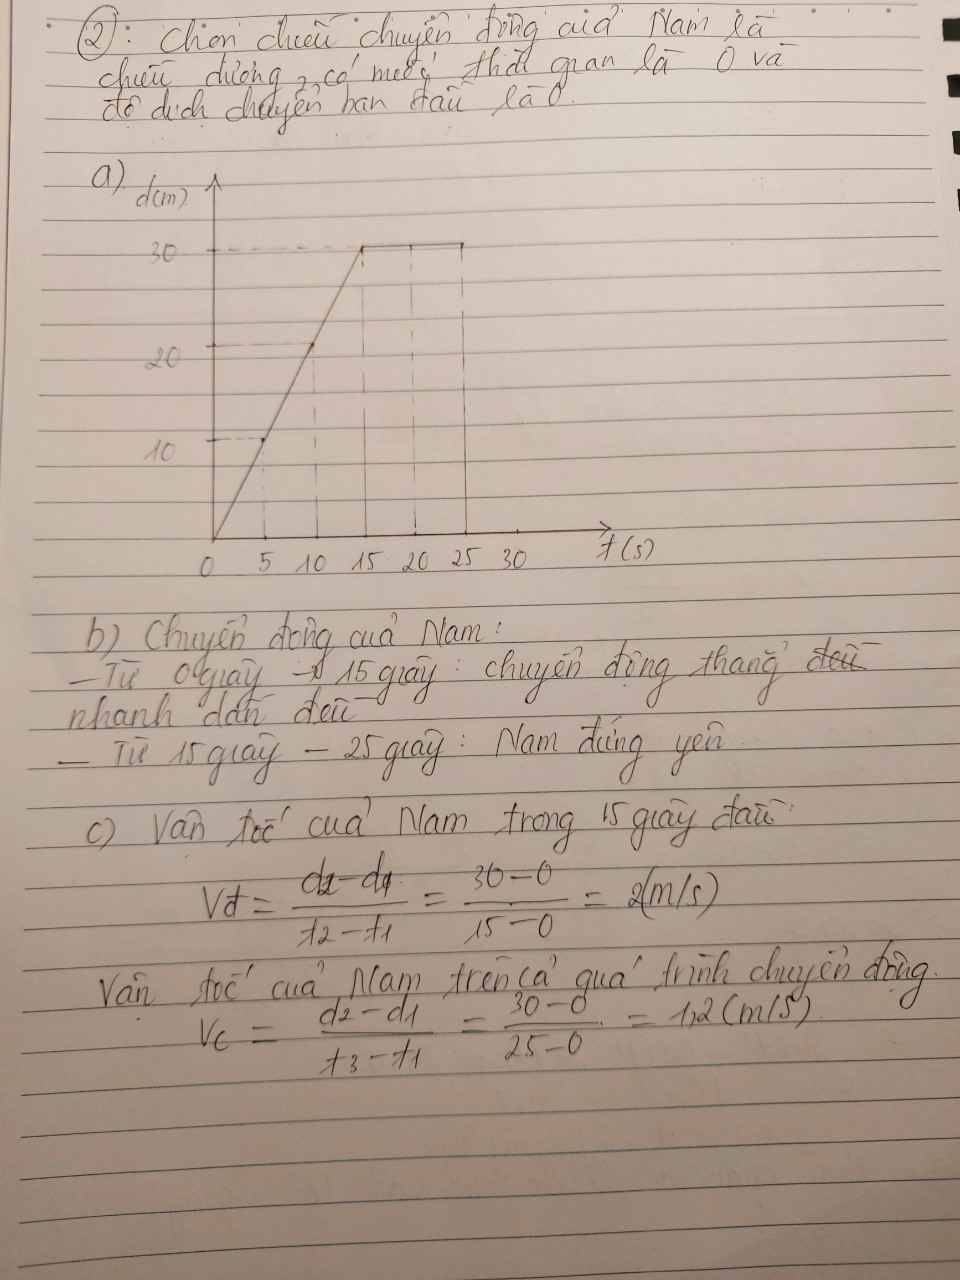 ②: Chọn chiều chuyển động của Nam là
chiều dương, có mốc thời gian là 0 và
độ dịch chuyển ban đầu là 0.
a)
d(m)
30
20
10
0 5 10 15 20 25 30 t(s)
b) Chuyển động của Nam:
- Từ 0 giây → 15 giây: chuyển động thẳng đều
nhanh dần đều
- Từ 15 giây - 25 giây: Nam đứng yên
c) Vận tốc của Nam trong 15 giây đầu:
Vđ = (d2-d1)/(t2-t1) = (30-0)/(15-0) = 2(m/s)
Vận tốc của Nam trên cả quá trình chuyển động.
Vc = (d2-d1)/(t3-t1) = (30-0)/(25-0) = 1,2 (m/s)